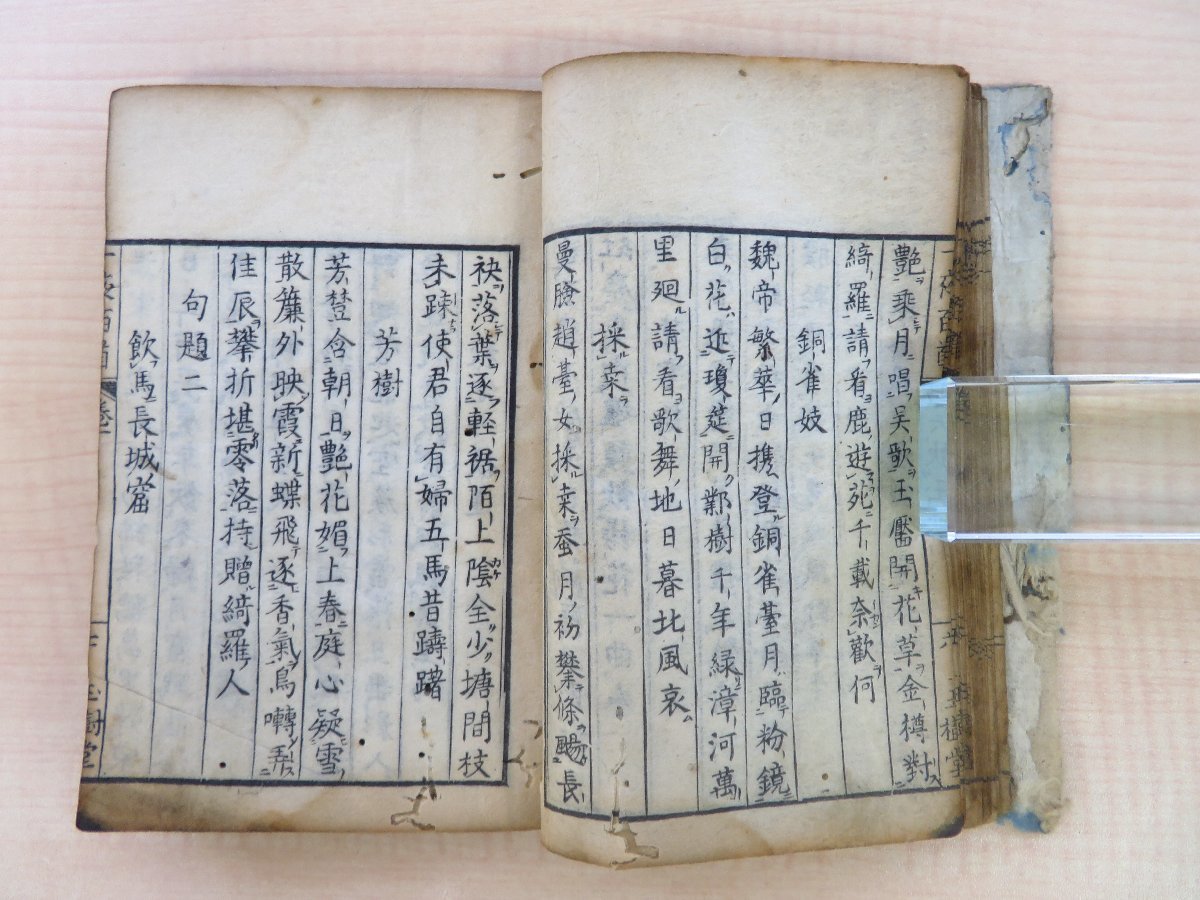 艶乘月唱吳歌玉靨開花草金樽對
綺羅請看鹿遊苑千載奈歡何
銅雀妓
魏帝繁華日携登銅雀臺月臨粉鏡
白花近瓊筵開鄴樹千年緑漳河萬
里廻請看歌舞地日暮北風哀
採桒
曼臉趙臺女採桒蚕月初攀條颺長
袂落葉逐軽裾陌上陰全少塘間枝
未疎使君自有婦五馬昔躊躇
芳樹
芳含朝日艶花媚上春庭心疑雪
散簾外映霞新蝶飛逐香氣鳥囀弄
佳辰攀折堪零落持贈綺羅人
句題二
飲馬長城窟
玉樹堂